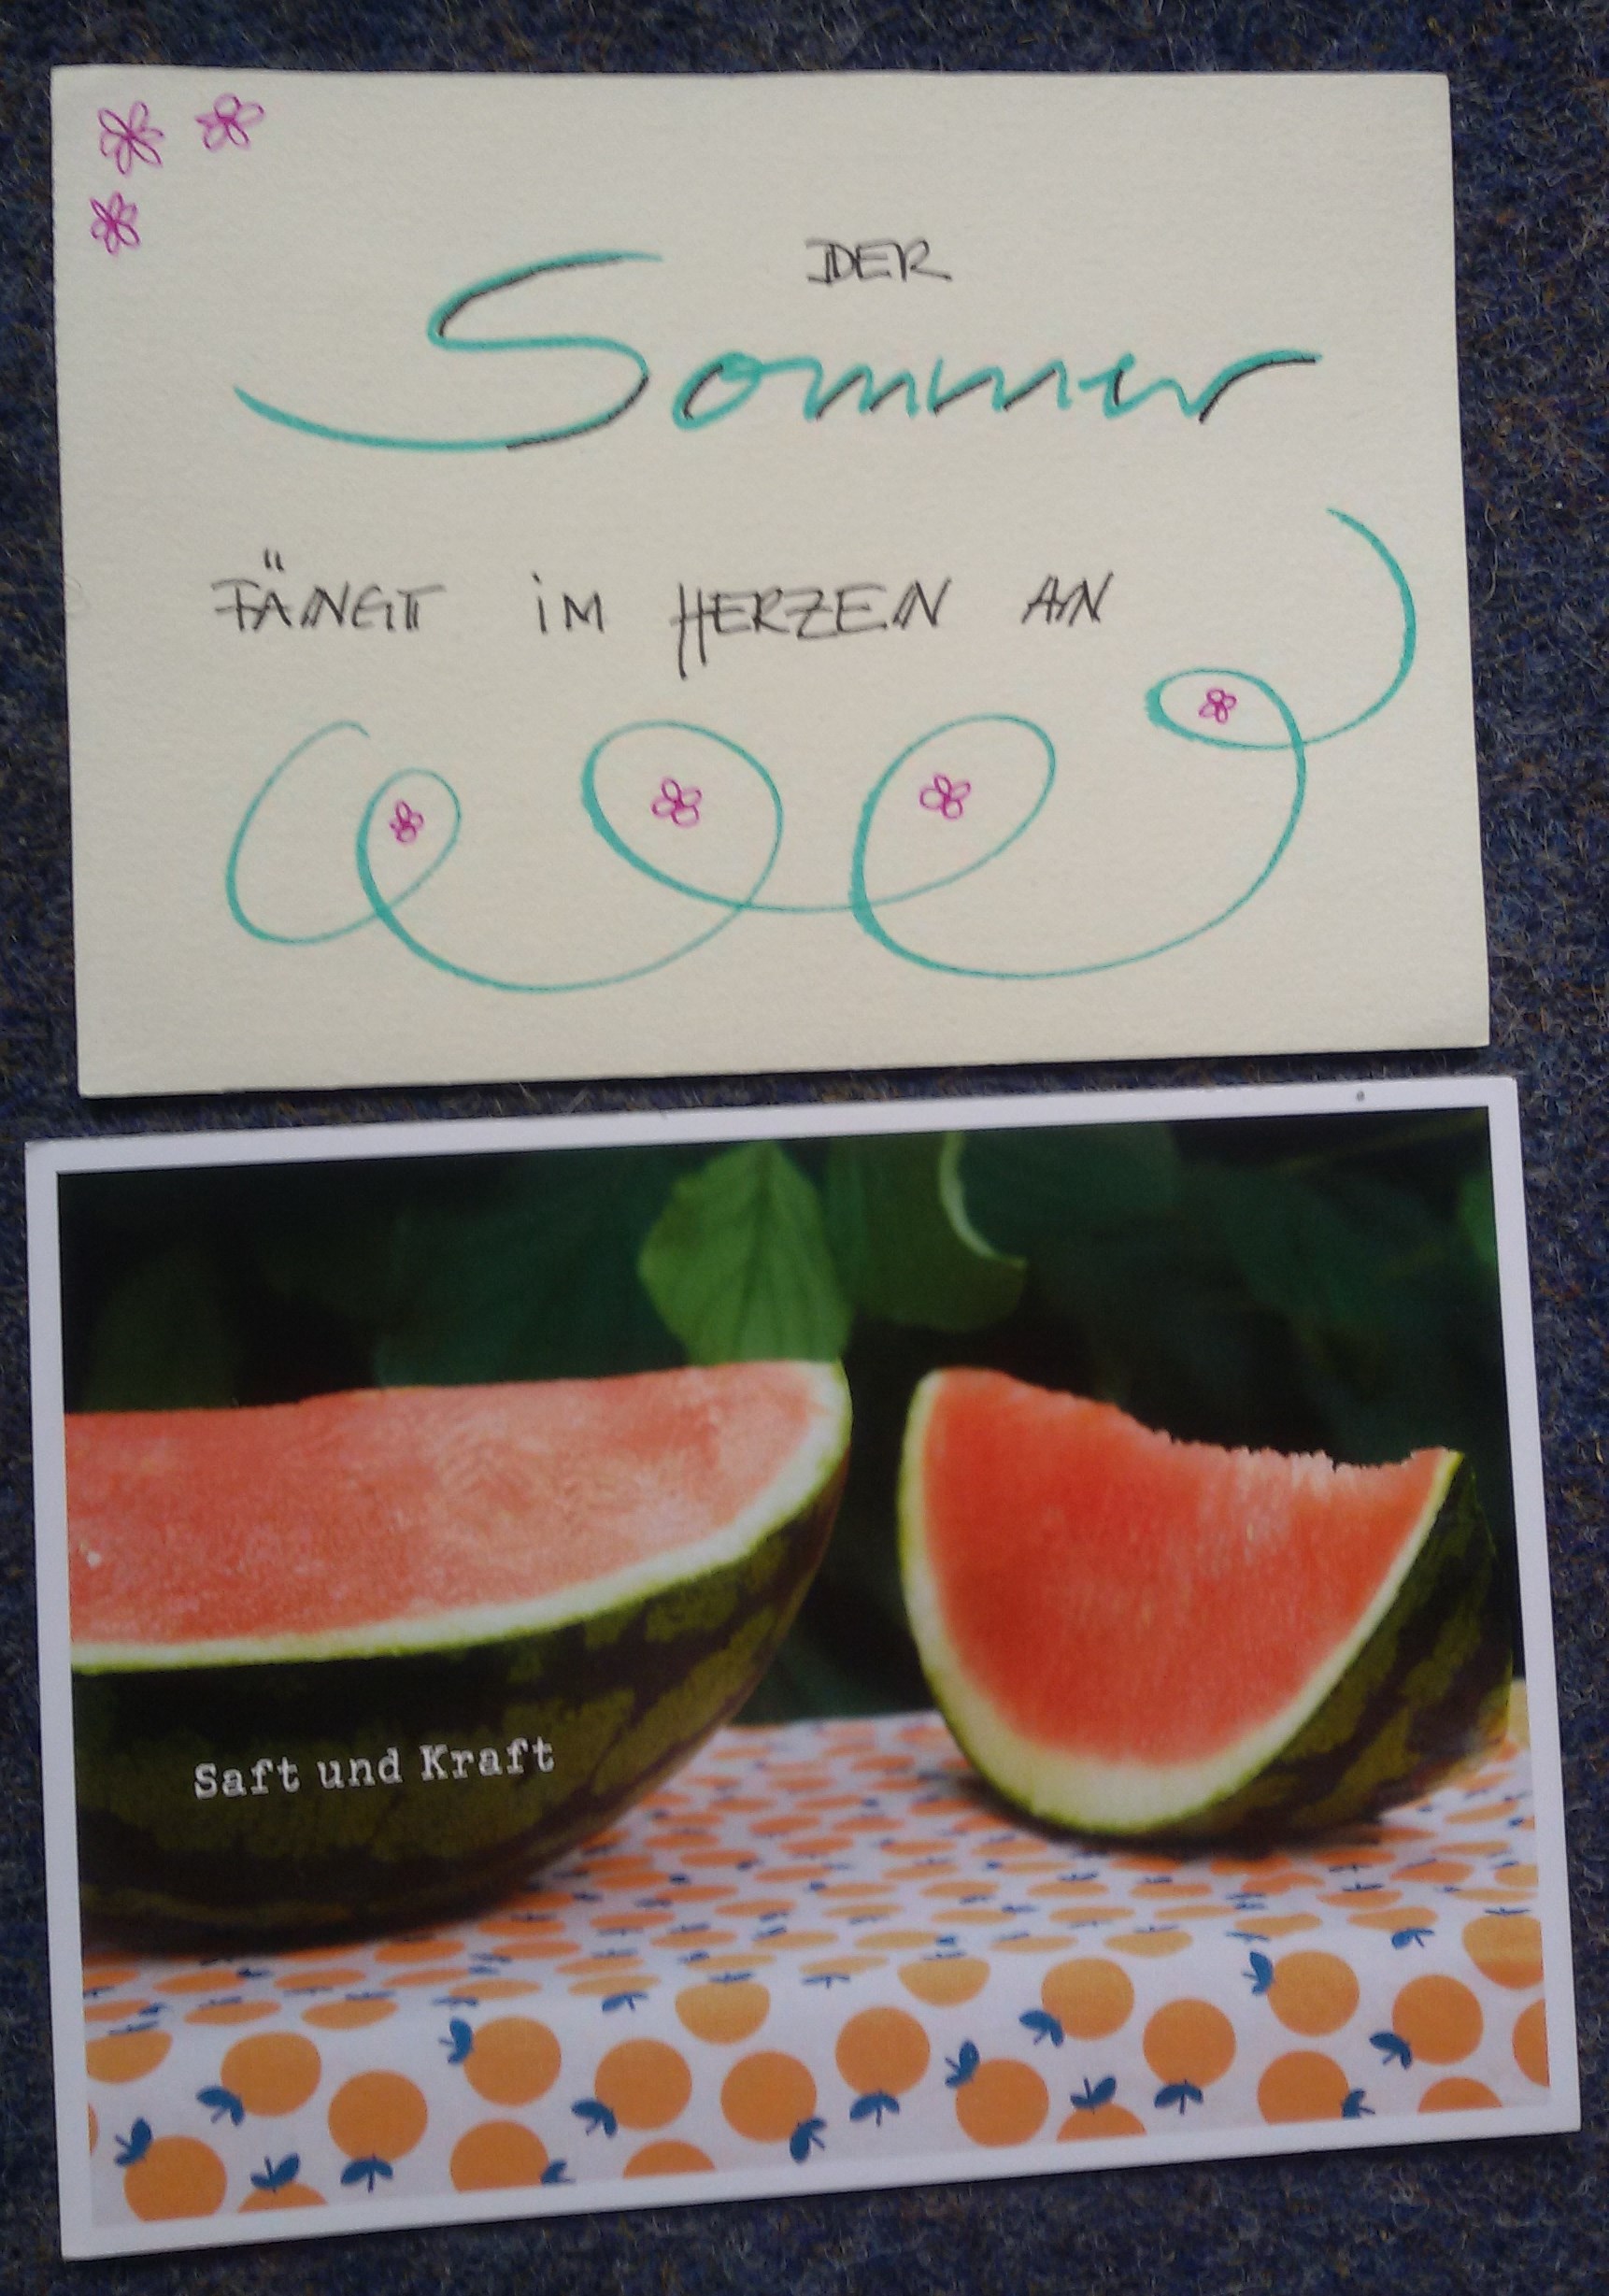 DER
Sommer
FÄNGT iM HERZEN AN
Saft und Kraft